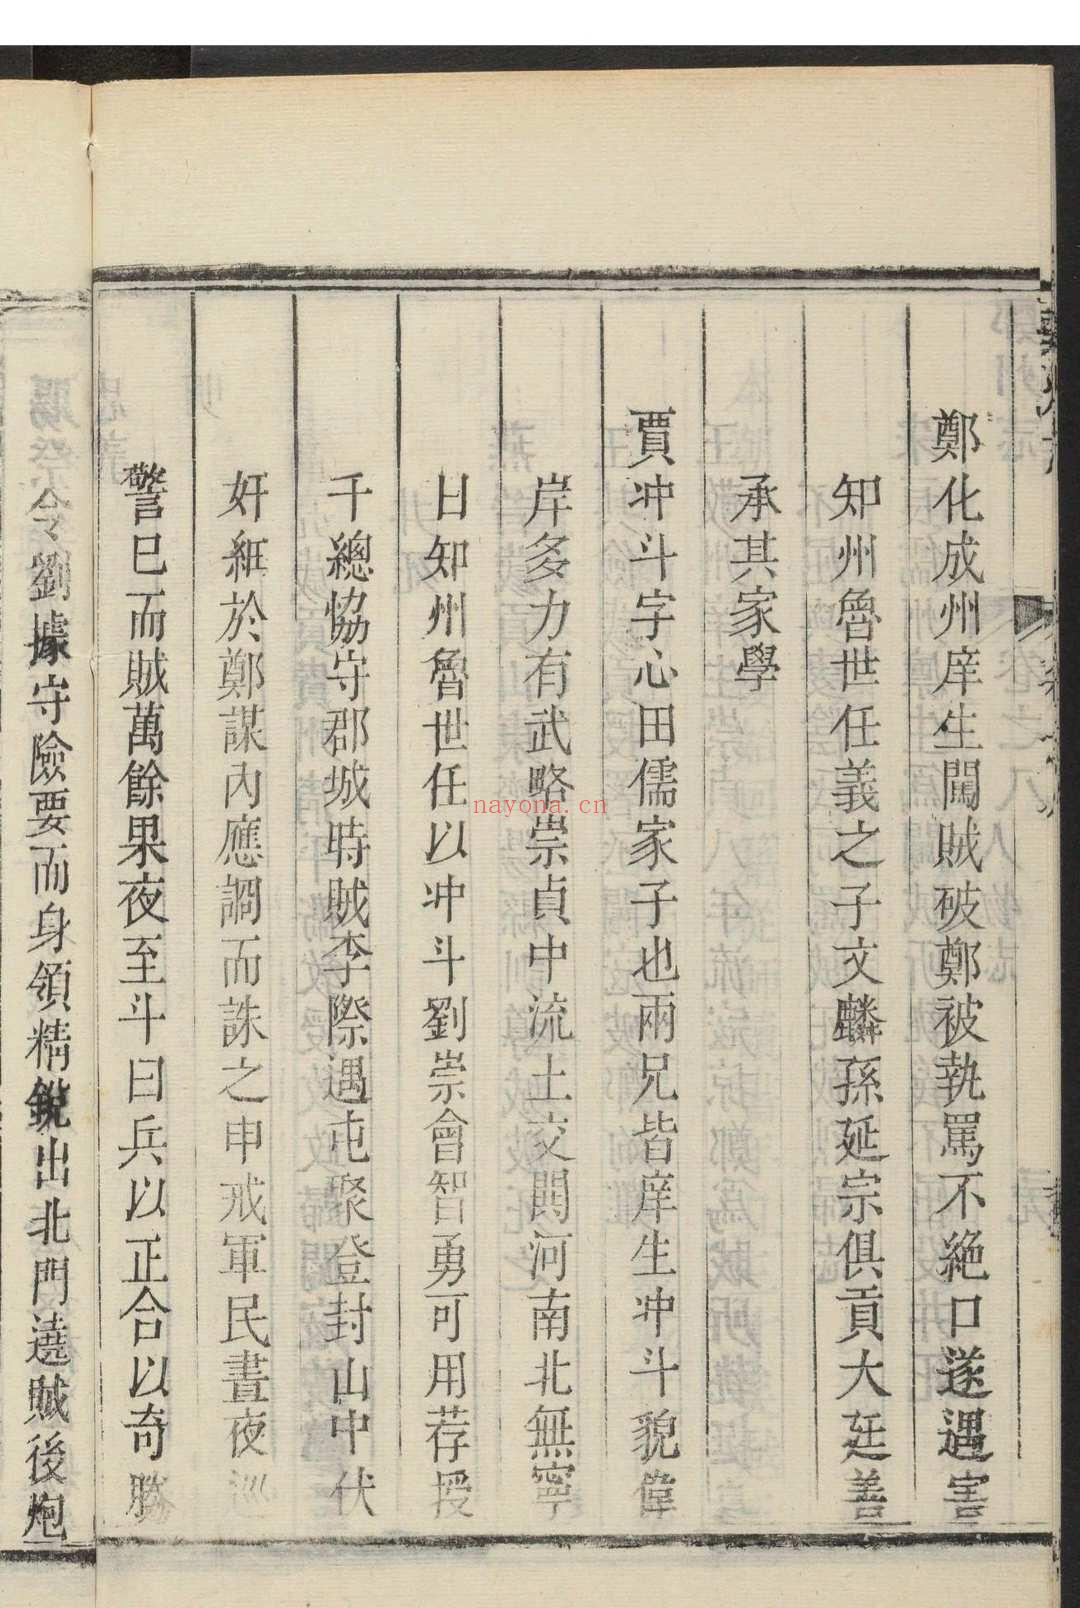 鄭化成州庠生闖賊破鄭被執罵不絶口遂遇害
知州魯世任義之子文麟孫延宗俱貢大廷善
承其家學
賈冲斗字心田儒家子也兩兄皆庠生冲斗貌偉
岸多力有武略崇貞中流土交鬨河南北無寧
日知州魯世任以冲斗劉崇會智勇可用荐授
千總恊守郡城時賊李際遇屯聚登封山中伏
奸細於鄭謀內應詷而誅之申戒軍民晝夜巡
警巳而賊萬餘果夜至斗曰兵以正合以奇勝
令劉據守險要而身領精銳出北門遶賊後炮
nayona.cn